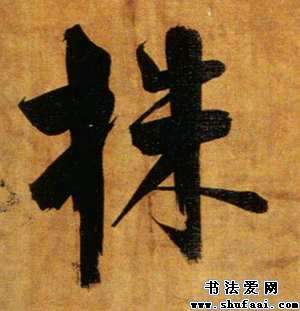 株
书法爱网
www.shufaai.com